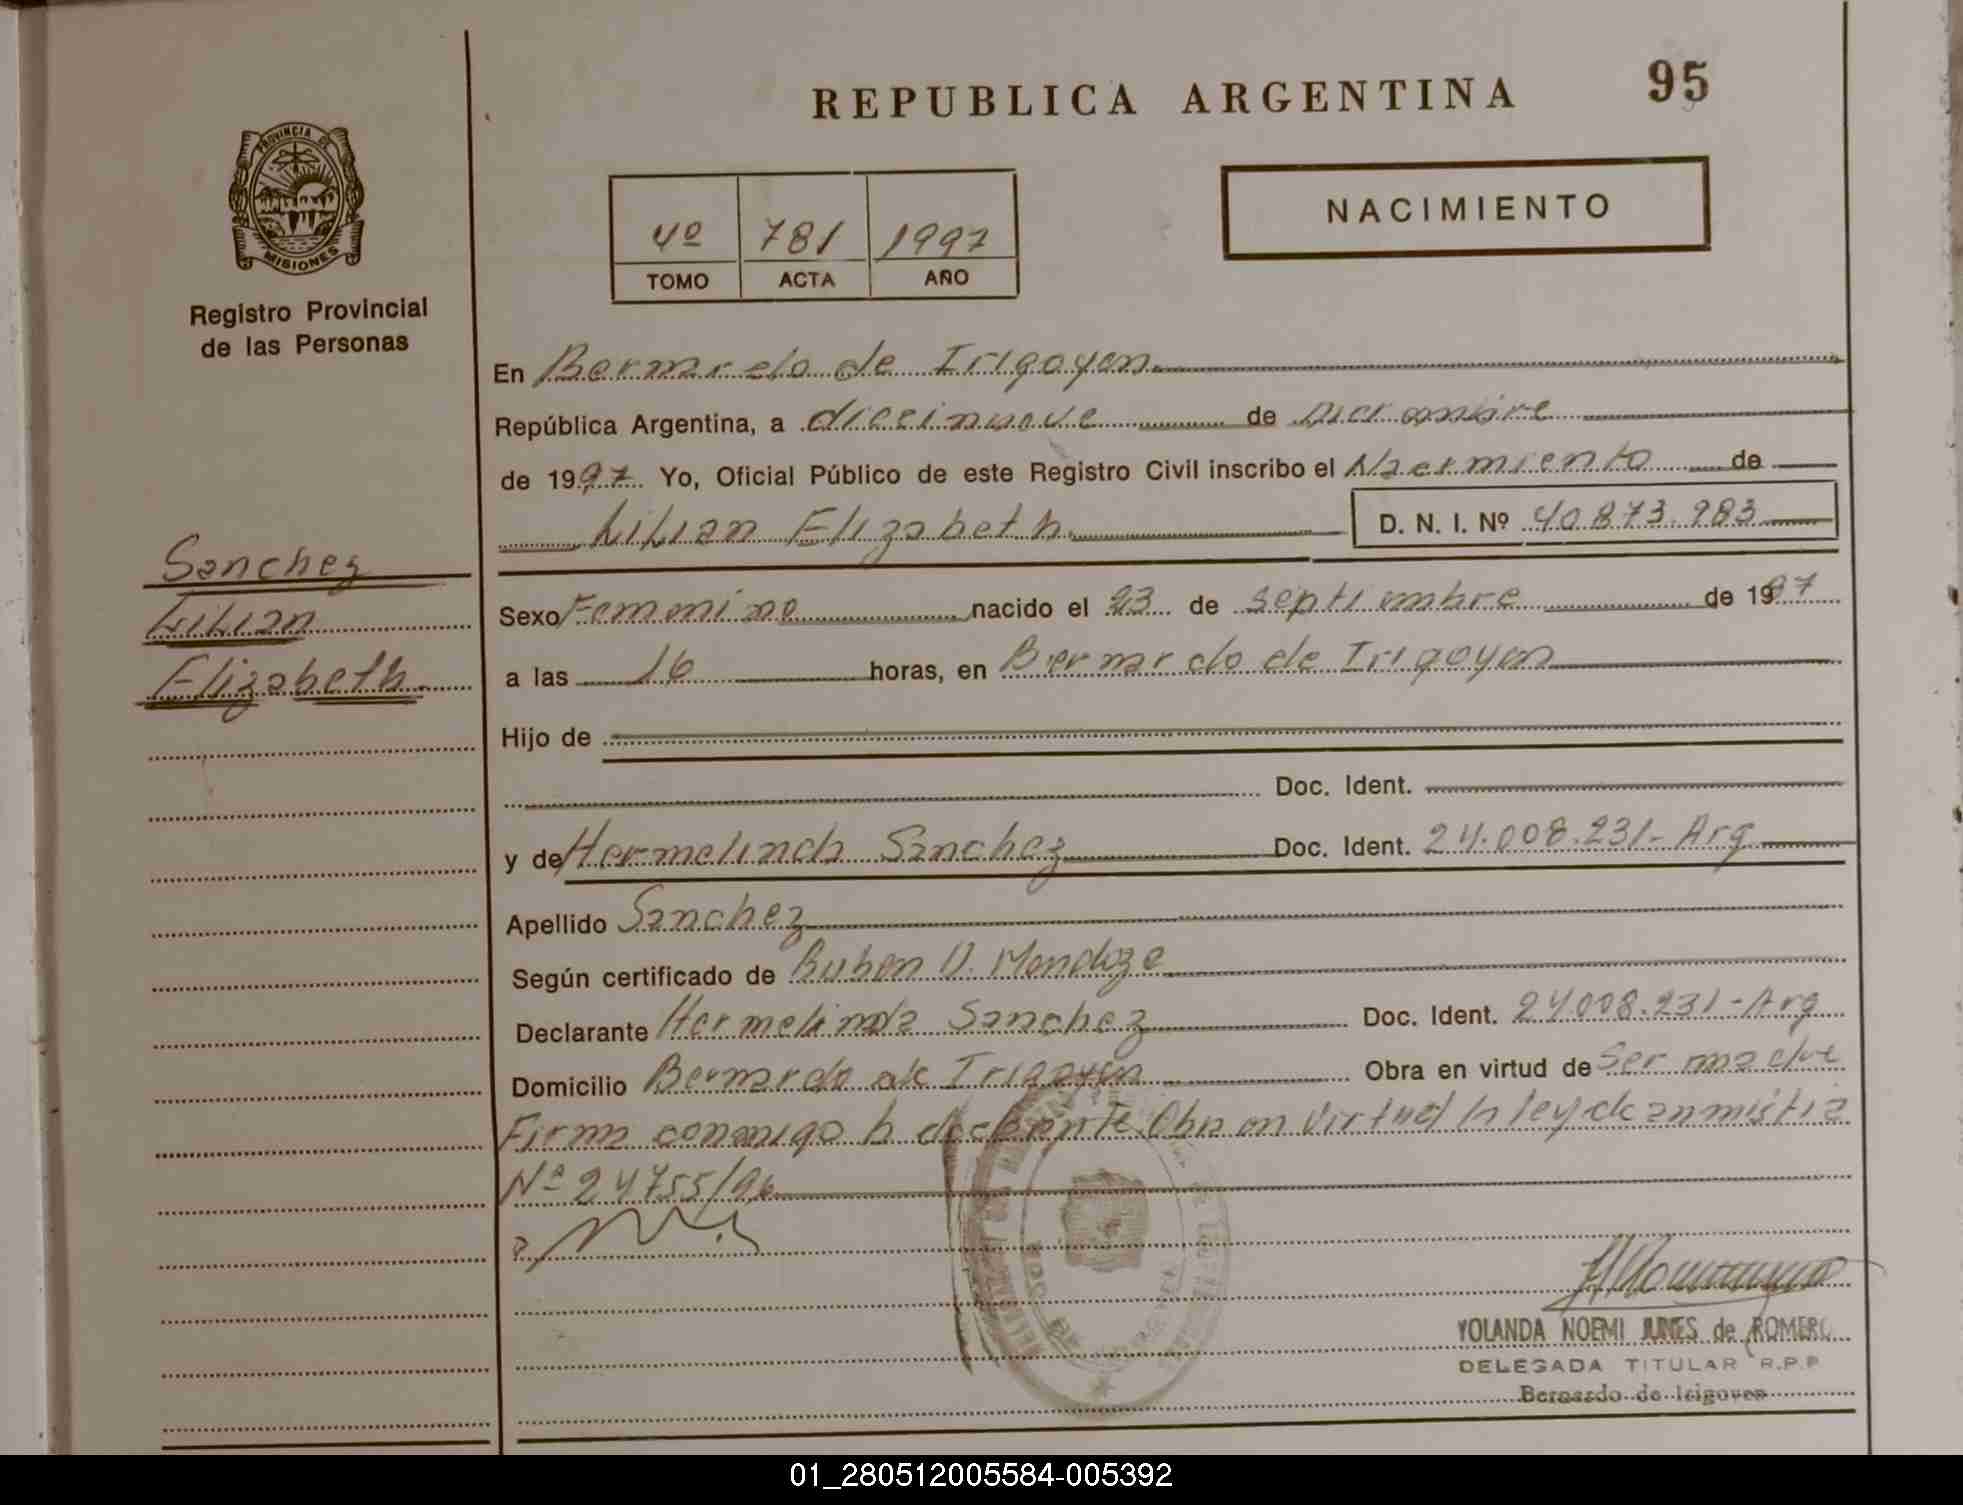 REPUBLICA ARGENTINA
95
PROVINCIA DE
MISIONES
Registro Provincial
de las Personas
4º 781 1997
TOMO ACTA AÑO
NACIMIENTO
En Bernardo de Irigoyen
República Argentina, a diecinueve de Diciembre
de 1997 Yo, Oficial Público de este Registro Civil inscribo el Nacimiento de
Lilian Elizabeth
D. N. I. Nº 40.873.983
Sanchez
Lilian
Elizabeth
Sexo Femenino nacido el 23 de septiembre de 1997
a las 16 horas, en Bernardo de Irigoyen
Hijo de
Doc. Ident.
y de Hermelinda Sanchez Doc. Ident. 24.008.231- Arg
Apellido Sanchez
Según certificado de Ruben D. Mendoza
Declarante Hermelinda Sanchez Doc. Ident. 24.008.231-Arg
Domicilio Bernardo de Irigoyen Obra en virtud de Ser madre
Firma conmigo la declarante. Obra en virtud la ley de anmistia
Nº 24755/96
YOLANDA NOEMI JUNES de ROMERO
DELEGADA TITULAR R.P.P
Bernardo de Irigoyen
01_280512005584-005392